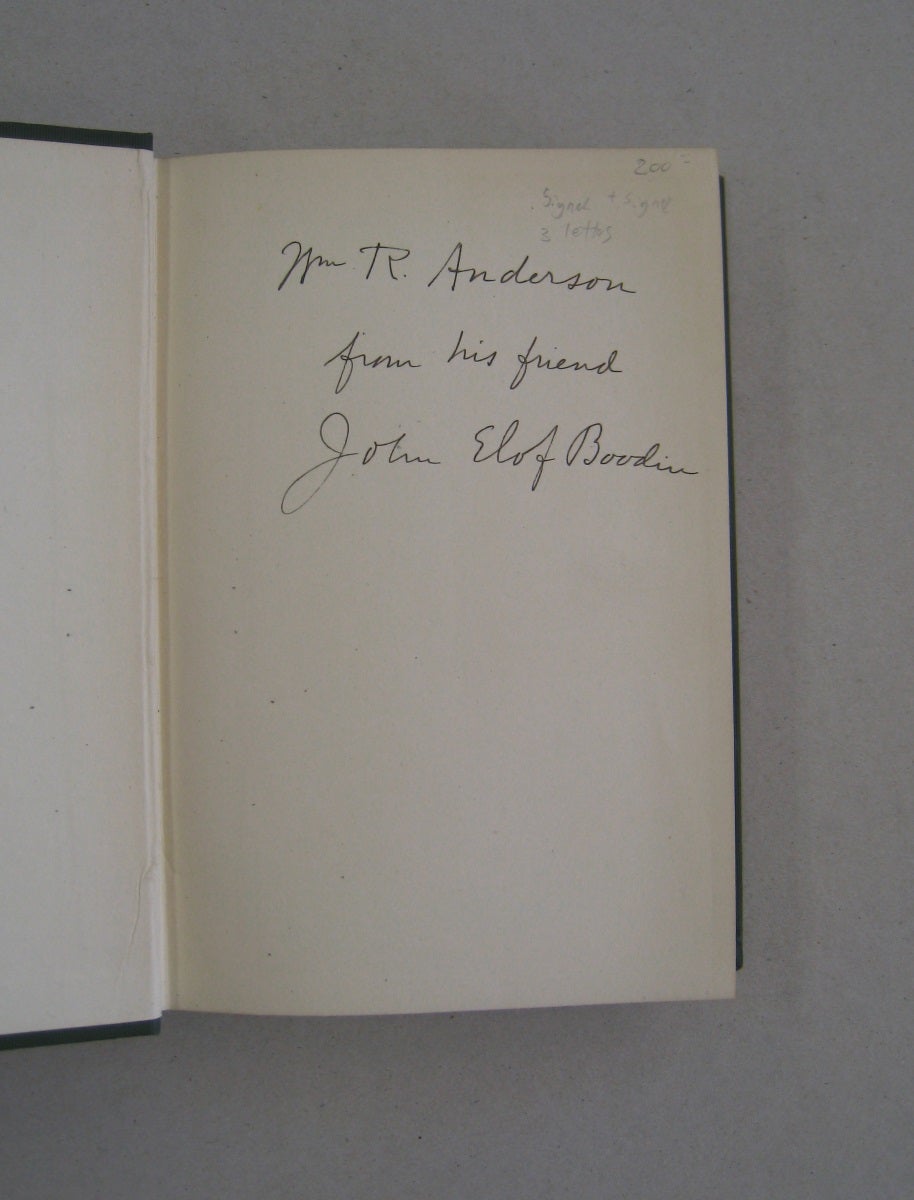 200-
Signed + Signed
3 letters
Wm. R. Anderson
from his friend
John Elof Boodin